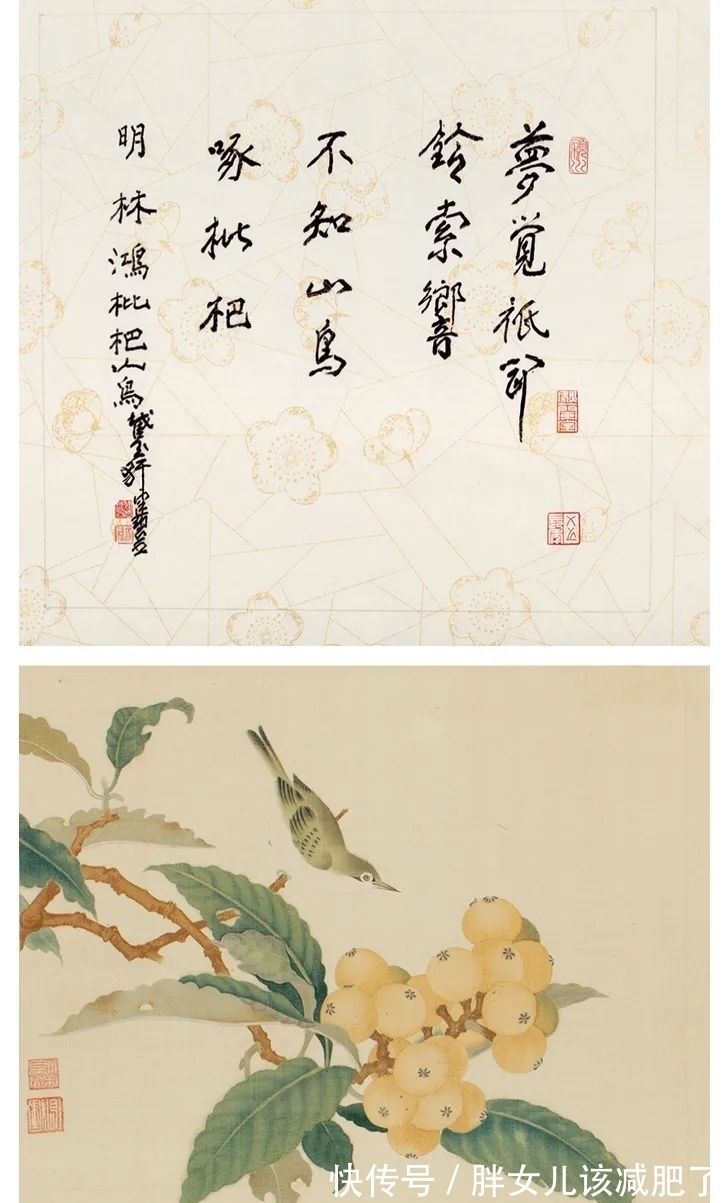 夢覺祇聞
鈴索響
不知山鳥
啄枇杷
明林鴻枇杷山鳥
快传号 / 胖女儿该减肥了